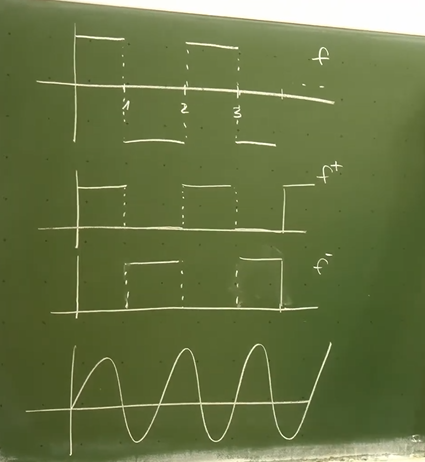 f
1 2 3
f⁺
f⁻